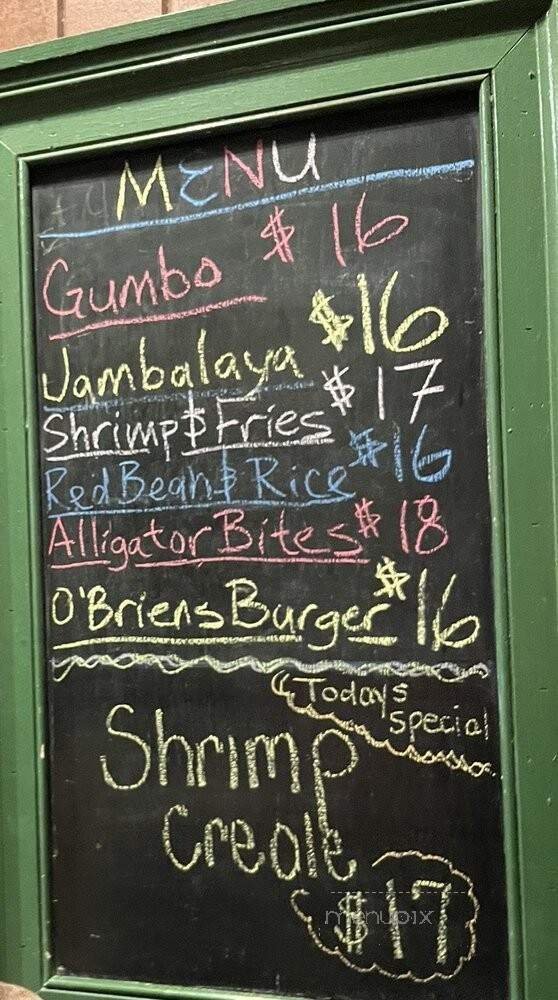 MENU
Gumbo $16
Jambalaya $16
Shrimp & Fries $17
Red Bean & Rice $16
Alligator Bites $18
O'Briens Burger $16
Todays
special
Shrimp
Creole
$17
menupix